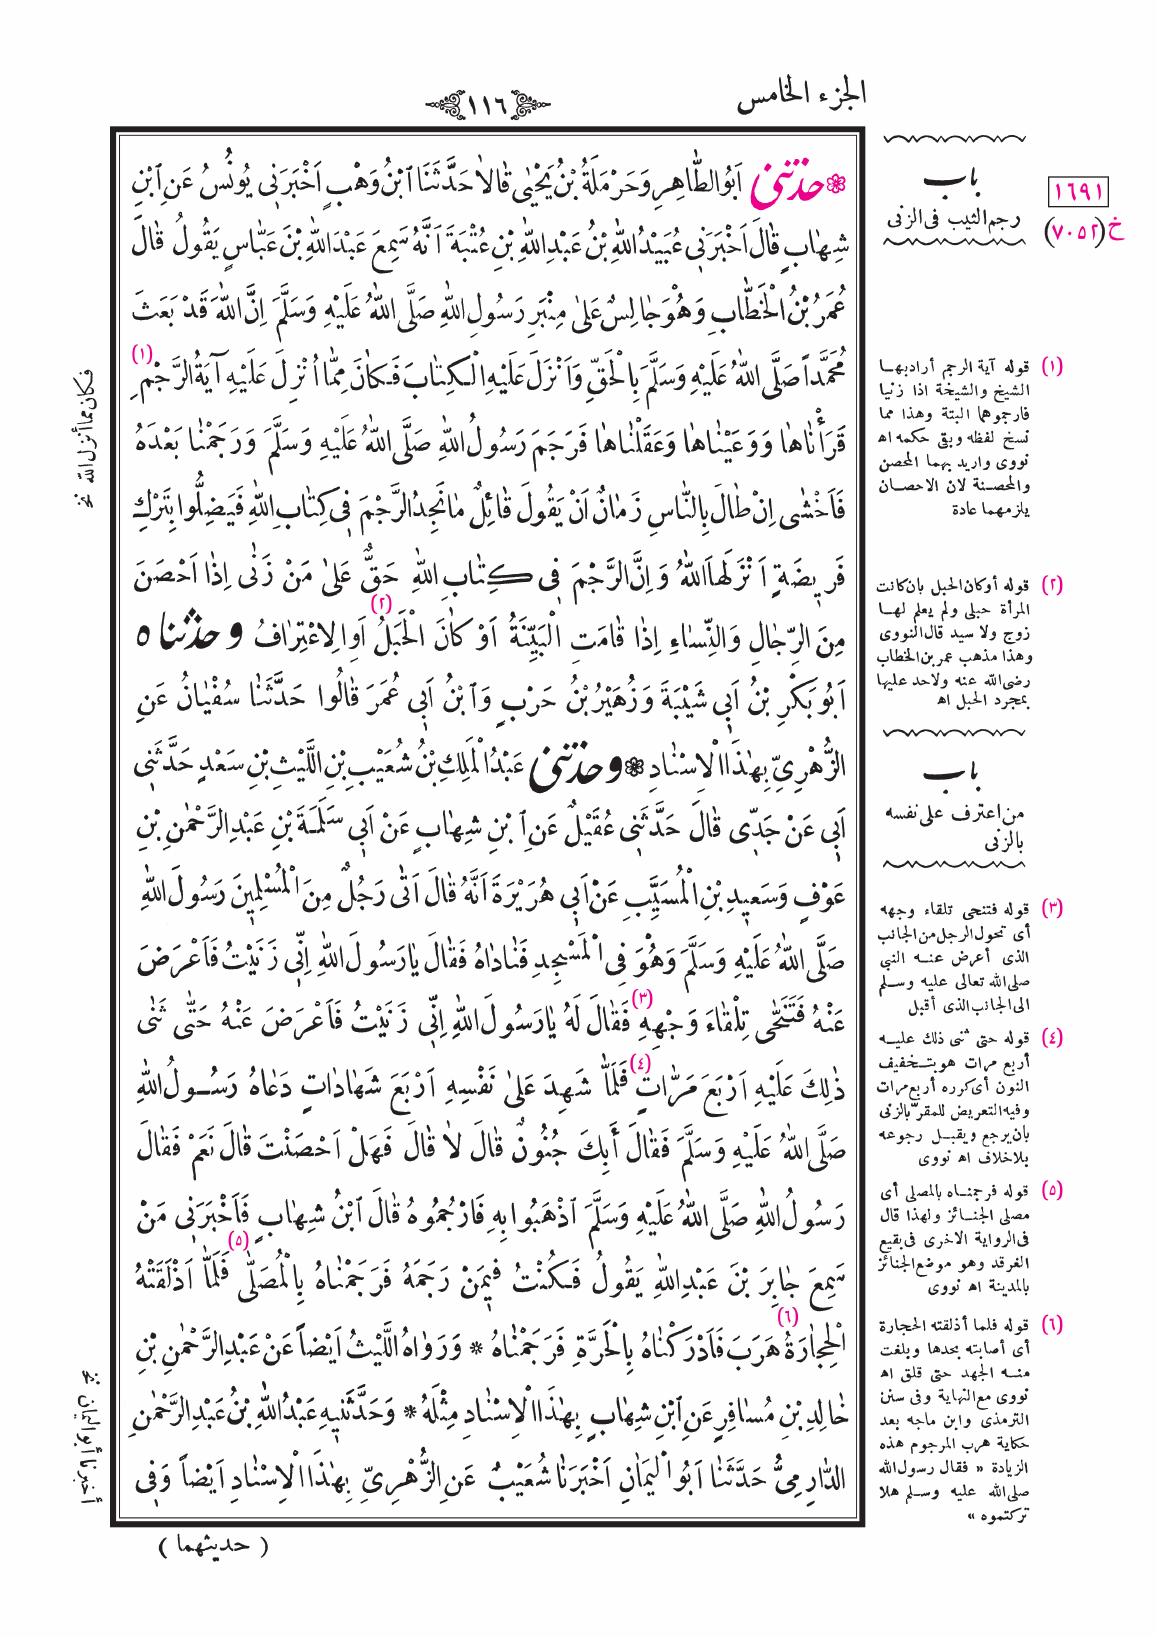 الجزء الخامس
١١٦
حدثنى اَبُوالطَّاهِرِ وَحَرْمَلَةُ بْنُ يَحْيٰى قٰالاٰ حَدَّثَنَا ابْنُ وَهْبٍ اَخْبَرَنِى يُونُسُ عَنِ ابْنِ
شِهٰابٍ قٰالَ اَخْبَرَنِى عُبَيْدُاللّٰهِ بْنُ عَبْدِاللّٰهِ بْنِ عُتْبَةَ اَنَّهُ سَمِعَ عَبْدَاللّٰهِ بْنَ عَبّٰاسٍ يَقُولُ قٰالَ
عُمَرُ بْنُ الْخَطّٰابِ وَهُوَ جٰالِسٌ عَلىٰ مِنْبَرِ رَسُولِ اللّٰهِ صَلَّى اللّٰهُ عَلَيْهِ وَسَلَّمَ اِنَّ اللّٰهَ قَدْ بَعَثَ
مُحَمَّداً صَلَّى اللّٰهُ عَلَيْهِ وَسَلَّمَ بِالْحَقِّ وَاَنْزَلَ عَلَيْهِ الْكِتٰابَ فَكٰانَ مِمّٰا اُنْزِلَ عَلَيْهِ آيَةُ الرَّجْمِ (١)
قَرَأْنٰاهٰا وَوَعَيْنٰاهٰا وَعَقَلْنٰاهٰا فَرَجَمَ رَسُولُ اللّٰهِ صَلَّى اللّٰهُ عَلَيْهِ وَسَلَّمَ وَرَجَمْنٰا بَعْدَهُ
فَاَخْشٰى اِنْ طٰالَ بِالنّٰاسِ زَمٰانٌ اَنْ يَقُولَ قٰائِلٌ مٰا نَجِدُ الرَّجْمَ فِى كِتٰابِ اللّٰهِ فَيَضِلُّوا بِتَرْكِ
فَرِيضَةٍ اَنْزَلَهَا اللّٰهُ وَاِنَّ الرَّجْمَ فِى كِتٰابِ اللّٰهِ حَقٌّ عَلىٰ مَنْ زَنٰى اِذٰا اَحْصَنَ
مِنَ الرِّجٰالِ وَالنِّسٰاءِ اِذٰا قٰامَتِ الْبَيِّنَةُ اَوْ كٰانَ الْحَبَلُ (٢) اَوِ الاِعْتِرٰافُ وحدثناه
اَبُو بَكْرِ بْنُ اَبِى شَيْبَةَ وَزُهَيْرُ بْنُ حَرْبٍ وَابْنُ اَبِى عُمَرَ قٰالُوا حَدَّثَنٰا سُفْيٰانُ عَنِ
الزُّهْرِىِّ بِهٰذَا الْاِسْنٰادِ وحدثنى عَبْدُالْمَلِكِ بْنُ شُعَيْبِ بْنِ اللَّيْثِ بْنِ سَعْدٍ حَدَّثَنِى
اَبِى عَنْ جَدِّى قٰالَ حَدَّثَنِى عُقَيْلٌ عَنِ ابْنِ شِهٰابٍ عَنْ اَبِى سَلَمَةَ بْنِ عَبْدِالرَّحْمٰنِ بْنِ
عَوْفٍ وَسَعِيدِ بْنِ الْمُسَيَّبِ عَنْ اَبِى هُرَيْرَةَ اَنَّهُ قٰالَ اَتٰى رَجُلٌ مِنَ الْمُسْلِمِينَ رَسُولَ اللّٰهِ
صَلَّى اللّٰهُ عَلَيْهِ وَسَلَّمَ وَهُوَ فِى الْمَسْجِدِ فَنٰادٰاهُ فَقٰالَ يٰا رَسُولَ اللّٰهِ اِنِّى زَنَيْتُ فَاَعْرَضَ
عَنْهُ فَتَنَحّٰى تِلْقٰاءَ وَجْهِهِ (٣) فَقٰالَ لَهُ يٰا رَسُولَ اللّٰهِ اِنِّى زَنَيْتُ فَاَعْرَضَ عَنْهُ حَتّٰى ثَنٰى
ذٰلِكَ عَلَيْهِ اَرْبَعَ مَرّٰاتٍ (٤) فَلَمّٰا شَهِدَ عَلىٰ نَفْسِهِ اَرْبَعَ شَهٰادٰاتٍ دَعٰاهُ رَسُولُ اللّٰهِ
صَلَّى اللّٰهُ عَلَيْهِ وَسَلَّمَ فَقٰالَ أَبِكَ جُنُونٌ قٰالَ لاٰ قٰالَ فَهَلْ اَحْصَنْتَ قٰالَ نَعَمْ فَقٰالَ
رَسُولُ اللّٰهِ صَلَّى اللّٰهُ عَلَيْهِ وَسَلَّمَ اذْهَبُوا بِهِ فَارْجُمُوهُ قٰالَ ابْنُ شِهٰابٍ فَاَخْبَرَنِى مَنْ
سَمِعَ جٰابِرَ بْنَ عَبْدِاللّٰهِ يَقُولُ فَكُنْتُ فِيمَنْ رَجَمَهُ فَرَجَمْنٰاهُ بِالْمُصَلّٰى (٥) فَلَمّٰا اَذْلَقَتْهُ
الْحِجٰارَةُ (٦) هَرَبَ فَاَدْرَكْنٰاهُ بِالْحَرَّةِ فَرَجَمْنٰاهُ * وَرَوٰاهُ اللَّيْثُ اَيْضاً عَنْ عَبْدِالرَّحْمٰنِ بْنِ
خٰالِدِ بْنِ مُسٰافِرٍ عَنِ ابْنِ شِهٰابٍ بِهٰذَا الْاِسْنٰادِ مِثْلَهُ * وَحَدَّثَنِيهِ عَبْدُاللّٰهِ بْنُ عَبْدِالرَّحْمٰنِ
الدّٰارِمِىُّ حَدَّثَنٰا اَبُوالْيَمٰانِ اَخْبَرَنٰا شُعَيْبٌ عَنِ الزُّهْرِىِّ بِهٰذَا الْاِسْنٰادِ اَيْضاً وَفِى
( حديثهما )
١٦٩١
خ(٧٠٥٢)
باب
رجم الثيب فى الزنى
(١) قوله آية الرجم أراد بهـا
الشيخ والشيخة اذا زنيا
فارجموهما البتة وهذا مما
نسخ لفظه وبقى حكمه اه
نووى واريد بهما المحصن
والمحصنة لان الاحصـان
يلزمهما عادة
(٢) قوله أو كان الحبل بان كانت
المرأة حبلى ولم يعلم لهـا
زوج ولا سيد قال النووى
وهذا مذهب عمر بن الخطاب
رضى الله عنه ولا حد عليها
بمجرد الحبل اه
باب
من اعترف على نفسه
بالزنى
(٣) قوله فتنحى تلقاء وجهه
أى تحول الرجل من الجانب
الذى أعرض عنـه النبى
صلى الله تعالى عليه وسـلم
الى الجانب الذى أقبل
(٤) قوله حتى ثنى ذلك عليـه
أربع مرات هو بتـخفيف
النون أى كرره أربع مرات
وفيه التعريض للمقرّ بالزنى
بان يرجع ويقبـل رجوعه
بلاخلاف اه نووى
(٥) قوله فرجمنـاه بالمصلى أى
مصلى الجنـائز ولهذا قال
فى الرواية الاخرى فى بقيع
الغرقد وهو موضع الجنائز
بالمدينة اه نووى
(٦) قوله فلما أذلقته الحجارة
أى أصابته بحدها وبلغت
منـه الجهد حتى قلق اه
نووى مع النهاية وفى سنن
الترمذى وابن ماجه بعد
حكاية هرب المرجوم هذه
الزيادة « فقال رسول الله
صلى الله عليه وسـلم هلا
تركتموه »
فكان مما أنزل الله نخ
أخبرنا أبو اليمان نخ